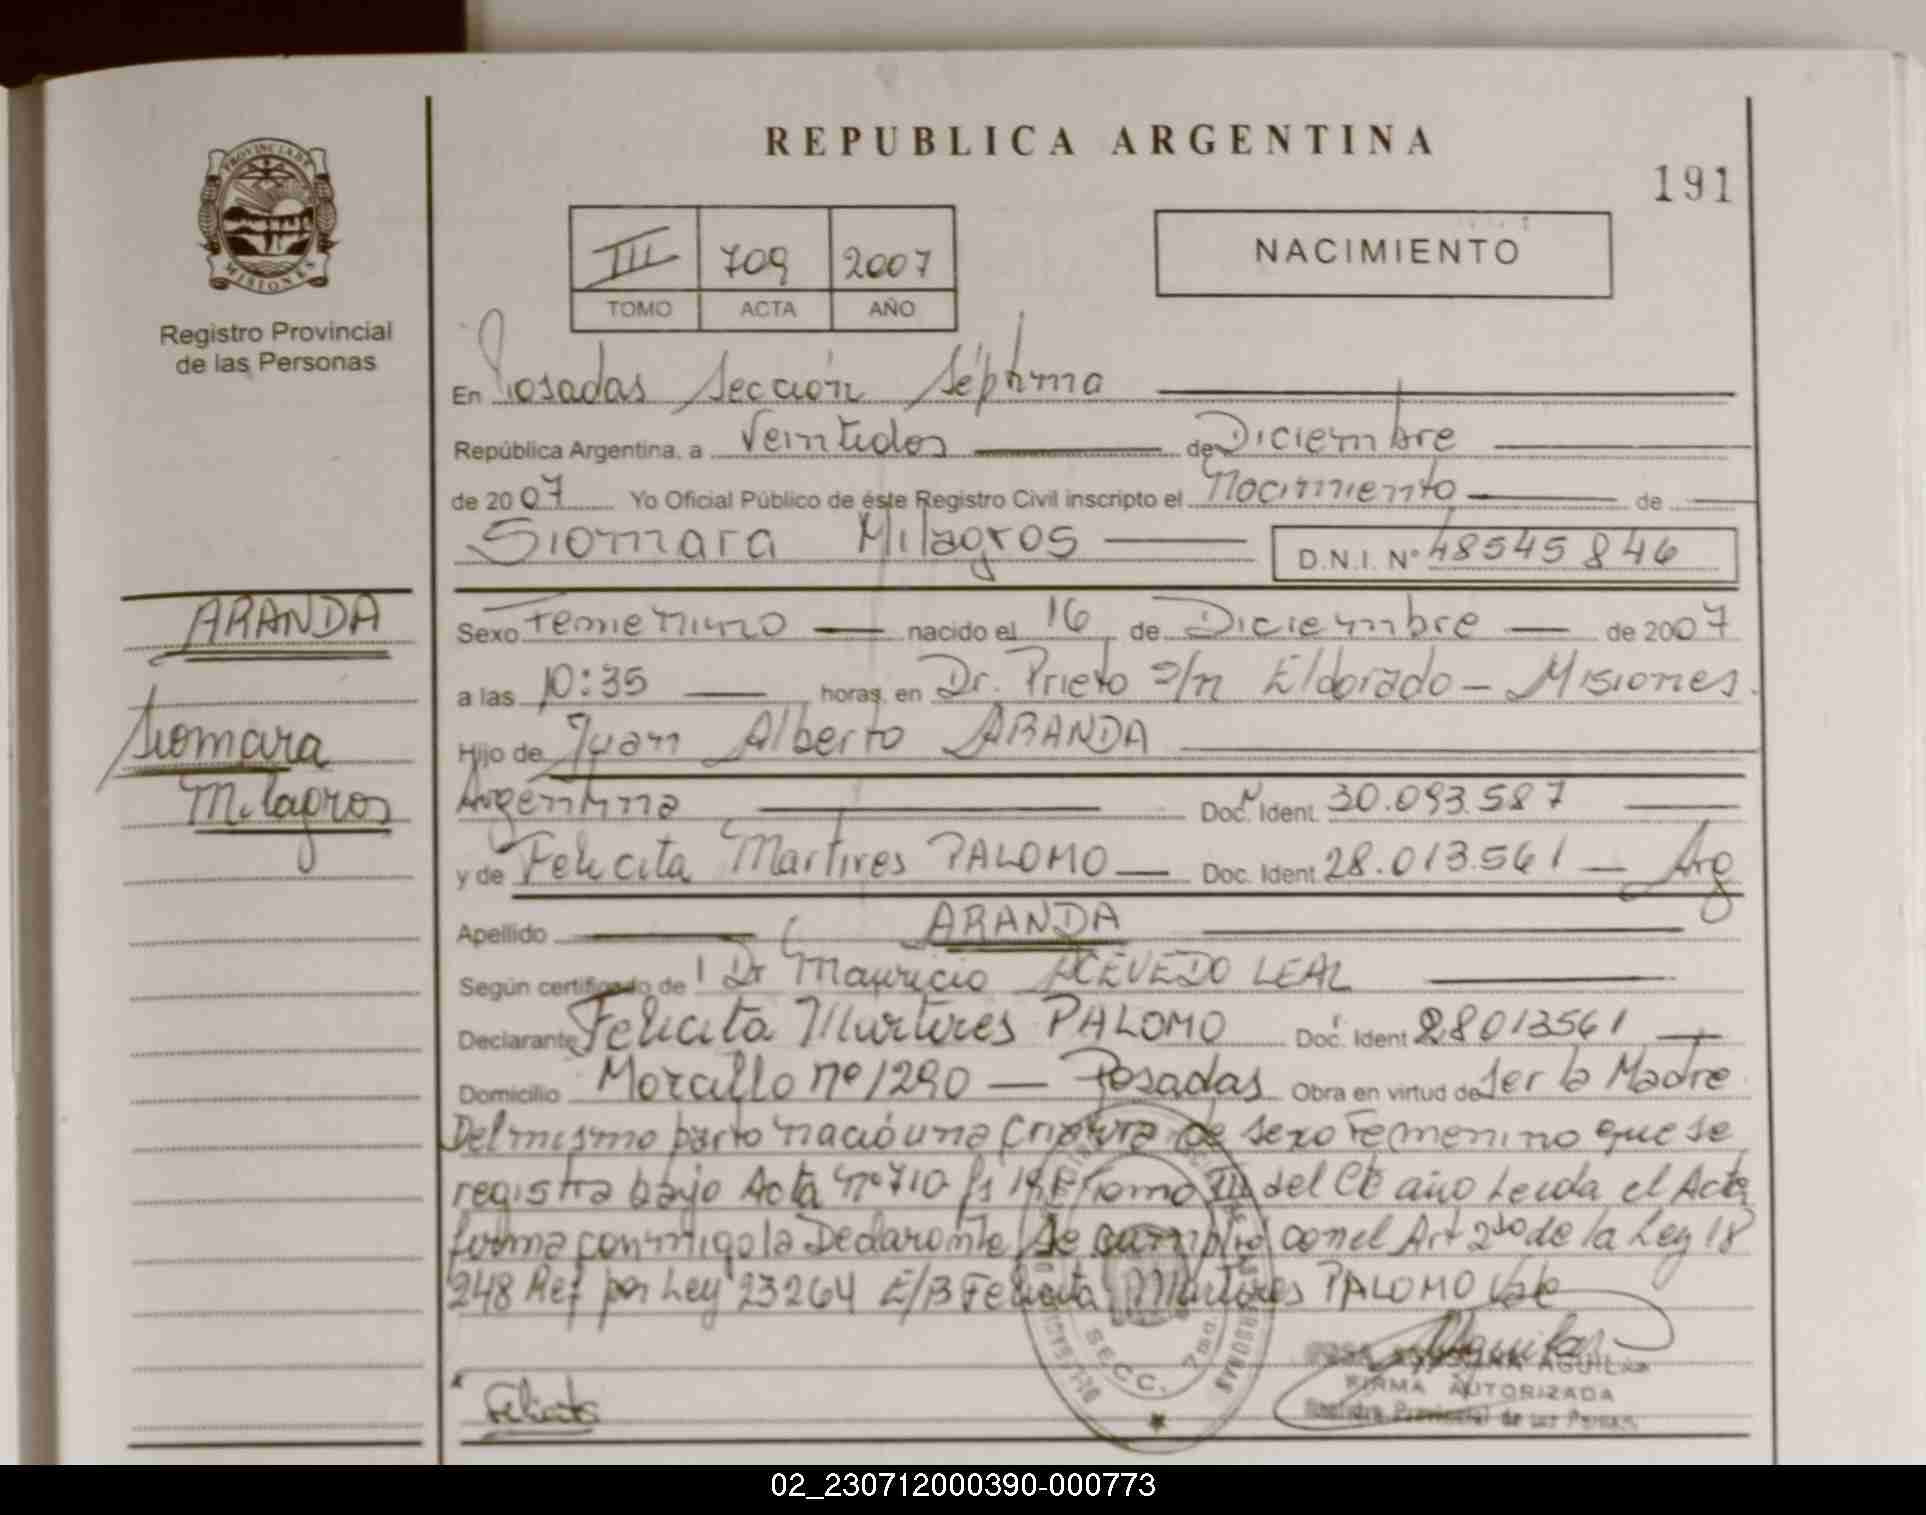 REPUBLICA ARGENTINA
191
PROVINCIA DE
MISIONES
Registro Provincial
de las Personas
III 709 2007
TOMO ACTA AÑO
NACIMIENTO
En Posadas Sección Séptima
República Argentina, a Veintidos de Diciembre
de 2007 Yo Oficial Público de éste Registro Civil inscripto el Nacimiento de
Siomara Milagros D.N.I. Nº 48545846
ARANDA
Siomara
Milagros
Sexo Femenino nacido el 16 de Diciembre de 2007
a las 10:35 horas, en Dr. Prieto s/n Eldorado - Misiones.
Hijo de Juan Alberto ARANDA
Argentina Doc. Ident. 30.093.587
y de Felicita Martires PALOMO Doc. Ident. 28.013.561 - Arg
Apellido ARANDA
Según certificado de Dr Mauricio ACEVEDO LEAL
Declarante Felicita Martires PALOMO Doc. Ident 28013561
Domicilio Morcillo nº 1290 - Posadas Obra en virtud de Ser la Madre
Del mismo parto nació una criatura de sexo Femenino que se
registra bajo Acta nº 710 Tomo III del Cte año Leida el Acta
firma conmigo la Declarante Se cumplió con el Art 2do de la Ley 18
248 Ref por Ley 23264 E/B Felicita Martires PALOMO Vale
Felicita
SECC. 7ma.
AGUILAR
FIRMA AUTORIZADA
Registro Provincial de las Person.
02_230712000390-000773